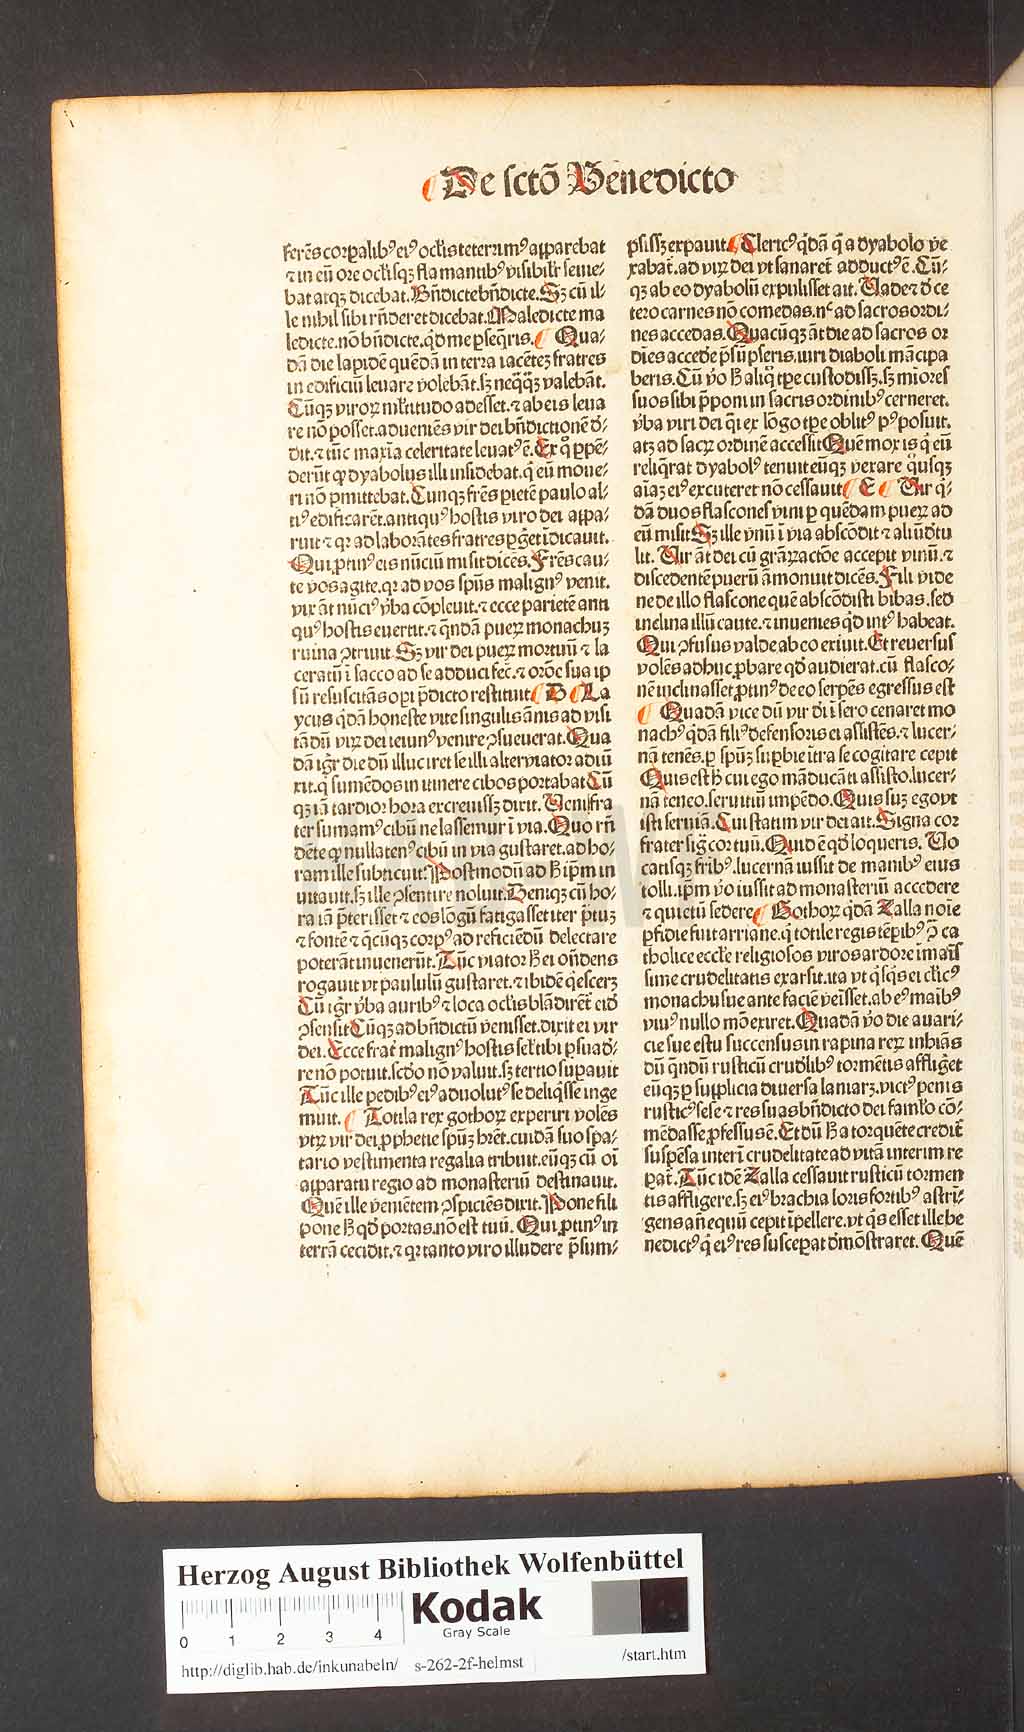 De sctō Benedicto
ferēs corꝑalibꝰ eiꝰ oclis teterrimꝰ apparebat
⁊ in eū ore oclisqꝫ flāmantibꝰ visibilr̄ seuie⸗
bat atqꝫ dicebat. Bn̄dicte bn̄dicte. Sꝫ cū il⸗
le nihil sibi rn̄deret dicebat. Maledicte ma
ledicte. nō bn̄dicte. qͥd me ꝑseq̄ris. Qua⸗
dā die lapidē quēdā in terra iacētēꝫ fratres
in edificiū leuare volebāt. sꝫ neq̄qͣꝫ valebāt.
Cūqꝫ viroꝝ ml̓titudo adesset. ⁊ ab eis leua
re nō posset. adueniēs vir dei bn̄dictionē d⸗
dit. ⁊ tūc maxīa celeritate leuatꝰ ē. Ex qͦ ꝑpē⸗
derūt ꝙ dyabolus illi insidebat. qͥ eū moue⸗
ri nō ꝑmittebat. Cunqꝫ frēs pietē paulo al⸗
tiꝰ edificarēt. antiquꝰ hostis viro dei appa⸗
ruit ⁊ qꝛ ad laborātes fratres ꝑget īdicauit.
Qui ꝓtinꝰ eis nūciū misit dicēs. Frēs cau⸗
te vos agite. qꝛ ad vos spūs malignꝰ venit.
vix āt nūciꝰ v̓ba cōpleuit. ⁊ ecce parietē anti
quꝰ hostis euertit. ⁊ qͣndā pueꝝ monachuꝫ
ruina ꝯtriuit. Sꝫ vir dei pueꝝ mortuū ⁊ la
ceratū ī sacco ad se adduci fec̄. ⁊ orōe sua ip
sū resuscitās opi p̄dicto restituit B La
ycus qͥdā honeste vite singulis ānis ad visi
tādū viꝝ dei ieiunꝰ venire ꝯsueuerat. Qua
dā igr̄ die dū illuc iret se illi alter viator adiū
xit. qͥ sumēdos in itinere cibos portabat Cū
qꝫ iā tardior hora excreuissꝫ dixit. Veni fra
ter sumamꝰ cibū ne lassemur ī via. Quo rn̄
dēte ꝙ nullatenꝰ cibū in via gustaret. ad ho⸗
ram ille subticuit. Postmodū ad h̄ ip̄m in
uitauit. sꝫ ille ꝯsentire noluit. Deniqꝫ cū ho⸗
ra iā p̄terisset ⁊ eos lōgū fatigasset iter p̄tuꝫ
⁊ fontē ⁊ qͥcūqꝫ corpꝰ ad reficiēdū delectare
poterāt inuenerūt. Tūc viator h̄ ei on̄dens
rogauit vt paululū gustaret. ⁊ ibidē qͥesceꝫ
Cū igr̄ v̓ba auribꝰ ⁊ loca oclis blādirēt̄ eid̄
ꝯsensit Cūqꝫ ad bn̄dictū venisset. dixit ei vir
dei. Ecce frat̄ malignꝰ hostis sel̓ tibi ꝑsuad⸗
re nō potuit. scd̄o nō valuit. sꝫ tertio suꝑauit
Tūc ille pedibꝰ eiꝰ aduolutꝰ se deliq̄sse inge
muit. Totila rex gothoꝝ experiri volēs
vtꝝ vir dei ꝓphetie spūꝫ hr̄et. cuidā suo spa⸗
tario vestimenta regalia tribuit. eūqꝫ cū oī
apparatu regio ad monasteriū destinauit.
Quē ille veniētem ꝯspiciēs dixit. Pone fili
pone h̄ qd̄ portas. nō est tuū. Qui ꝓtinꝰ in
terrā cecidit. ⁊ qꝛ tanto viro illudere p̄sum⸗
psissꝫ expauit. Clericꝰ qͥdā qͥ a dyabolo ve
xabat̄. ad viꝝ dei vt sanaret̄ adductꝰ ē. Cū⸗
qꝫ ab eo dyabolū expulisset ait. Uade ⁊ d̄ ce
tero carnes nō comedas. nͨ ad sacros ordi⸗
nes accedas. Quacūqꝫ āt die ad sacros or
dīes accede p̄sūpseris. iuri diaboli mācipa
beris. Cū v̓o h̄ aliqͦ tꝑe custodissꝫ. sꝫ mīores
suos sibi p̄poni in sacris ordinibꝰ cerneret.
v̓ba viri dei qͣi ex lōgo tꝑe oblitꝰ pꝰposuit.
atꝫ ad sacꝝ ordinē accessit Quē mox is qͥ eū
reliq̄rat dyabolꝰ tenuit eūqꝫ vexare qͦusqꝫ
aīaꝫ eiꝰ excuteret nō cessauit E Vir qͥ⸗
dā duos flascones vini ꝑ quēdam pueꝝ ad
eū misit Sꝫ ille vnū ī via abscōdit ⁊ aliū d̓tu
lit. Vir āt dei cū grāꝝ actōe accepit vinū. ⁊
discedentē puerū āmonuit dicēs. Fili vide
ne de illo flascone quē abscōdisti bibas. sed
inclina illū caute. ⁊ inuenies qͥd intꝰ habeat.
Qui ꝯfusus valde ab eo exiuit. Et reuersus
volēs adhuc ꝓbare qd̄ audierat. cū flasco⸗
nē inclinasset ꝓtinꝰ de eo serpēs egressus est
Quadā vice dū vir di ī sero cenaret mo
nachꝰ qͥdā filiꝰ defensoris ei assistēs. ⁊ lucer⸗
nā tenēs. ꝑ spūꝫ suꝑbie ītra se cogitare cepit
Quis est h̄ cui ego māducāti assisto. lucer⸗
nā teneo. seruitiū impēdo. Quis suꝫ ego vt
isti seruiā. Cui statim vir dei ait. Signa cor
frater sig̓ cor tuū. Quid ē qd̄ loqueris. Uo
catisqꝫ fr̄ibꝰ. lucernā iussit de manibꝰ eius
tolli. ip̄m v̓o iussit ad monasteriū accedere
⁊ quietū sedere Gothoꝝ qͥdā Zalla noīe
ꝑfidie fuit arriane. qͥ totile regis tēꝑibꝰ ꝯ̄ ca
tholice eccl̓e religiosos viros ardore īmaīs⸗
sime crudelitatis exarsit. ita vt qͥsqͥs ei cl̓icꝰ
monachusue ante faciē veīsset. ab eꝰ maībꝰ
viuꝰ nullo mō exiret. Quadā v̓o die auari⸗
cie sue estu succensus in rapina reꝝ inhiās
dū qͣndū rusticū crud̓libꝰ tormētis affligēt
eūqꝫ ꝑ supplicia diuersa laniarꝫ. victꝰ penis
rusticꝰ sese ⁊ res suas bn̄dicto dei famlo cō⸗
mēdasse ꝓfessus ē. Et dū h̄ a torquēte credit̄
suspēsa interī crudelitate ad vitā interim re
ꝑat̄. Tūc idē Zalla cessauit rusticū tormen
tis affligere. sꝫ eiꝰ brachia loris fortibꝰ astrī⸗
gens an̄ equū cepit īpellere. vt qͥs esset ille be
nedictꝰ qͥ eiꝰ res susceꝑat d̓mōstraret. Quē
Herzog August Bibliothek Wolfenbüttel
0 1 2 3 4
Kodak
Gray Scale
http://diglib.hab.de/inkunabeln/ s-262-2f-helmst /start.htm